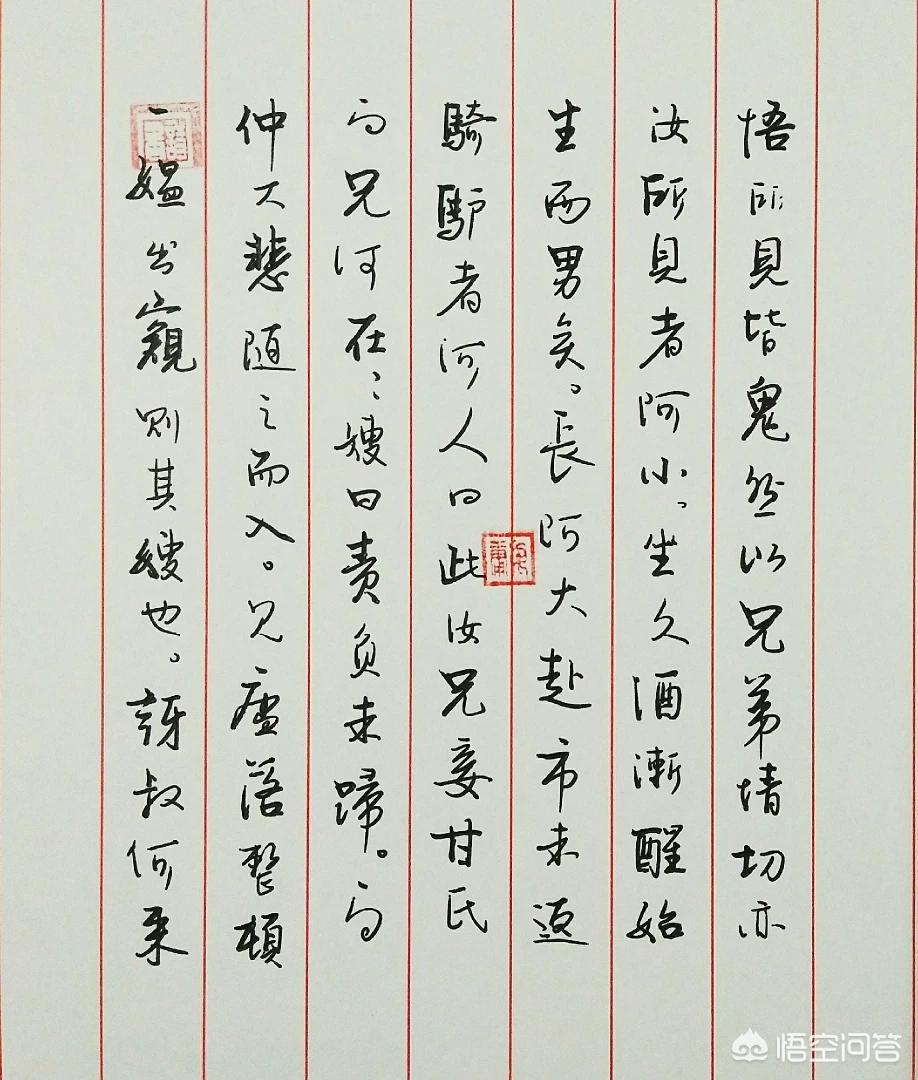 一媼出窺則其嫂也。訝叔何来
仲大悲随之而入。见廬落整頓
问兄何在、嫂曰責負未歸。问
騎驴者何人曰此汝兄妾甘氏
生两男矣。長阿大赴市未返
汝所見者阿小。坐久酒漸醒始
悟所見皆鬼然以兄弟情切亦
悟空问答